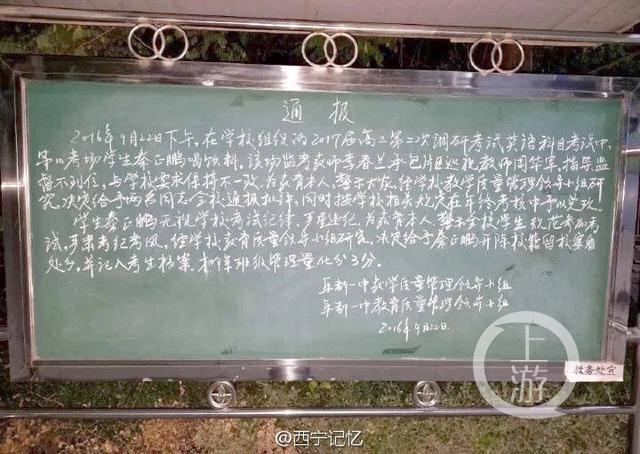 通报
2016年9月22日下午,在学校组织的2017届高三第二次调研考试英语科目考试中,
第10考场学生秦正鹏喝饮料,该场监考教师李春兰和包片区巡视教师周华军,指导监
督不到位,与学校要求保持不一致,为教育本人,警示大众,经学校教学质量管理领导小组研
究,决定给予两名同志全校通报批评,同时按学校相关规定在年终考核中予以定攻.
学生秦正鹏无视学校考试纪律,严重违纪,为教育本人,警示全校学生规范参加考
试,严肃考纪考风,经学校教育质量领导小组研究,决定给予秦正鹏开除校籍留校察看
处分,并记入考生档案,扣9年班级管理量化分3分.
乐都一中教学质量管理领导小组
乐都一中教育质量管理领导小组
2016年9月22日
教务处宣
上游
@西宁记忆